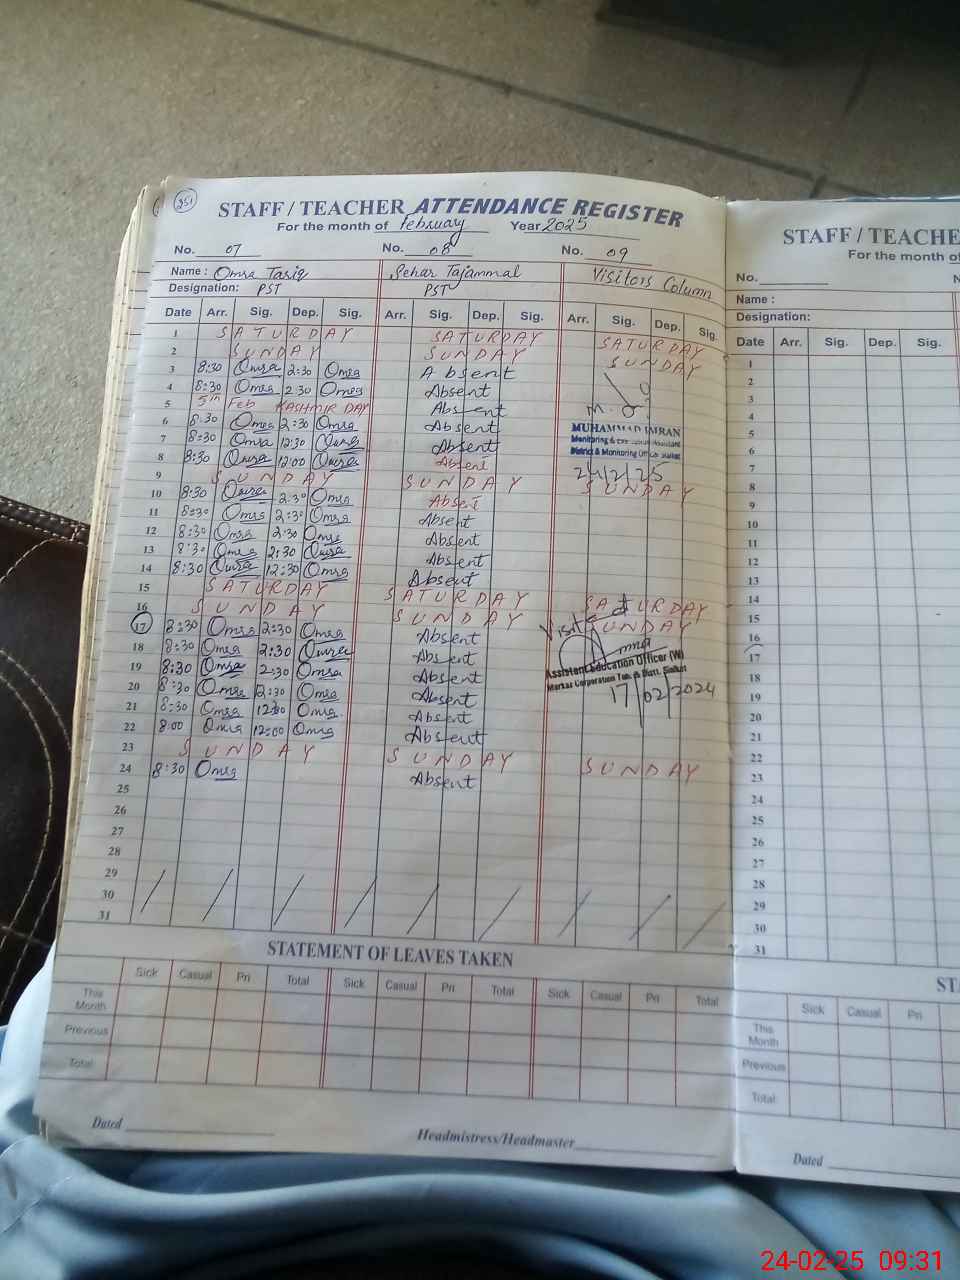 351
STAFF / TEACHER ATTENDANCE REGISTER
For the month of February Year 2025
No. 07 No. 08 No. 09
Name : Omra Tariq Sehar Tajammal Visitors Column
Designation: PST PST
Date Arr. Sig. Dep. Sig. Arr. Sig. Dep. Sig. Arr. Sig. Dep. Sig.
1 SATURDAY SATURDAY SATURDAY
2 SUNDAY SUNDAY SUNDAY
3 8:30 Omra 2:30 Omra Absent
4 8:30 Omra 2:30 Omra Absent
5 5th Feb KASHMIR DAY Absent
6 8:30 Omra 2:30 Omra Absent
7 8:30 Omra 12:30 Omra Absent
8 8:30 Omra 12:00 Omra Absent
MUHAMMAD IMRAN
Monitoring &
District & Monitoring
9 SUNDAY SUNDAY SUNDAY
10 8:30 Omra 2:30 Omra Absent
11 8:30 Omra 2:30 Omra Absent
12 8:30 Omra 2:30 Omra Absent
13 8:30 Omra 2:30 Omra Absent
14 8:30 Omra 12:30 Omra Absent
15 SATURDAY SATURDAY SATURDAY
16 SUNDAY SUNDAY SUNDAY
17 8:30 Omra 2:30 Omra Absent
Visited
18 8:30 Omra 2:30 Omra Absent
19 8:30 Omra 2:30 Omra Absent
20 8:30 Omra 2:30 Omra Absent
21 8:30 Omra 12:30 Omra Absent
22 8:00 Omra 12:00 Omra Absent
Assistant Education Officer (W)
Markaz Corporation Teh. & Distt. Sialkot
17/02/2024
23 SUNDAY SUNDAY SUNDAY
24 8:30 Omra Absent
25
26
27
28
29
30
31
STATEMENT OF LEAVES TAKEN
Sick Casual Pri Total Sick Casual Pri Total Sick Casual Pri Total
This Month
Previous
Total
Dated
Headmistress/Headmaster
STAFF / TEACHE
For the month of
No.
Name :
Designation:
Date Arr. Sig. Dep. Sig.
1
2
3
4
5
6
7
8
9
10
11
12
13
14
15
16
17
18
19
20
21
22
23
24
25
26
27
28
29
30
31
STA
Sick Casual Pri
This Month
Previous
Total
Dated
24-02-25 09:31